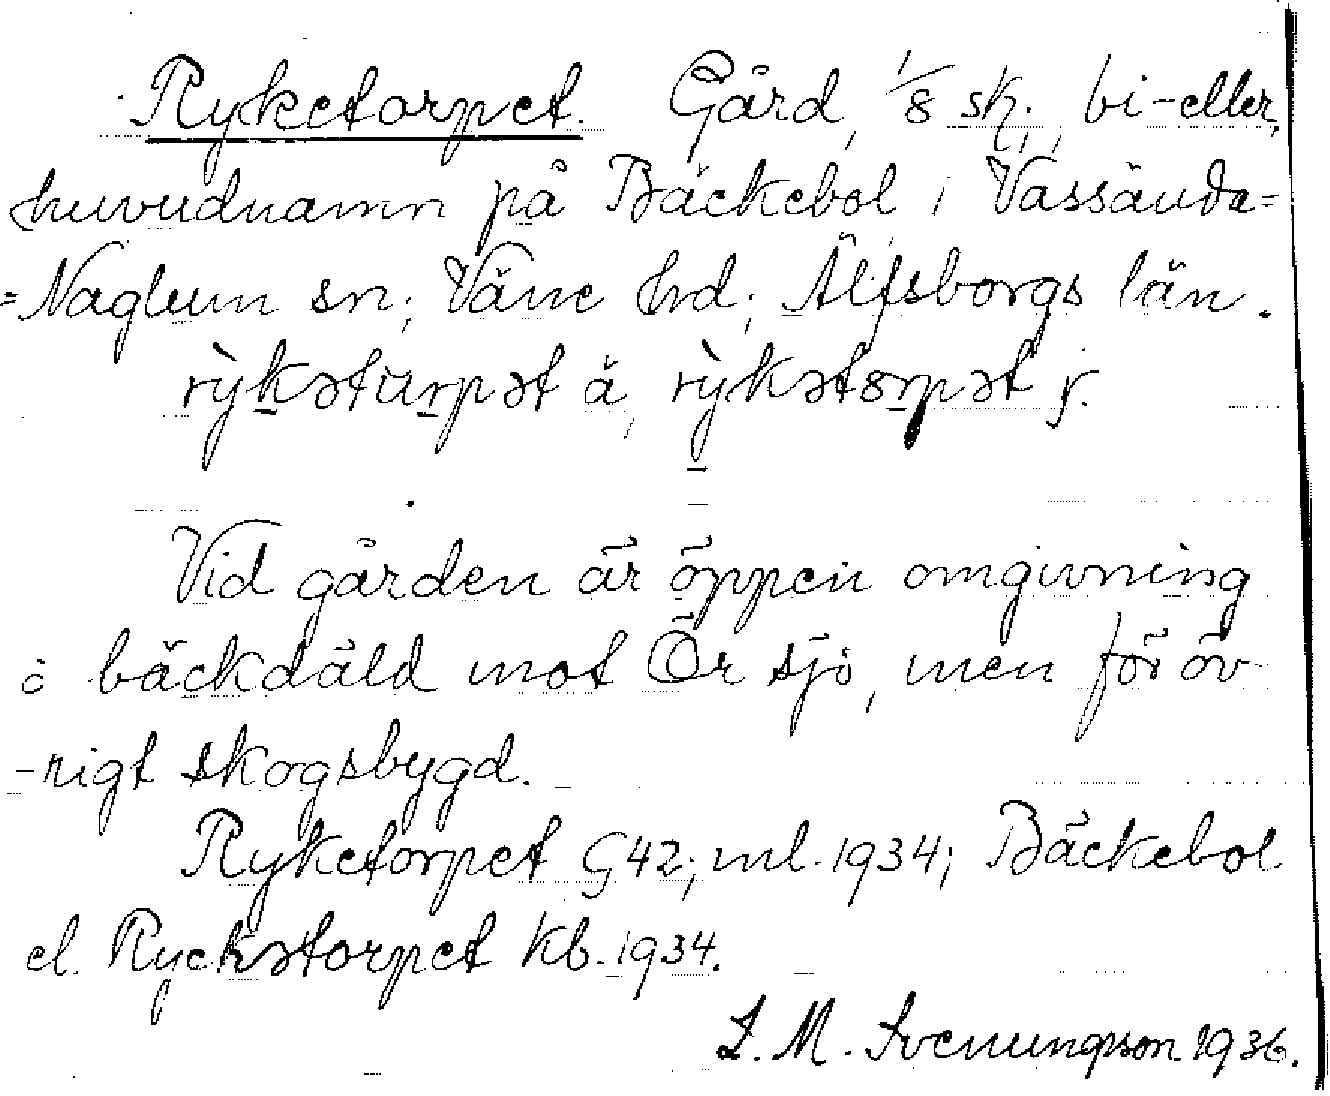 Ryketorpet. Gård, 1/8 sk., bi- eller
huvudnamn på Bäckebol i Vassända-
-Naglum sn, Väne hd, Älfsborgs län.
rỳkəturpət ä, rỳkətorpət j.
Vid gården är öppen omgivning
o bäckdäld mot Ör sjö, men för öv-
-rigt skogsbygd.
Ryketorpet G42; ml. 1934; Bäckebol
el. Ryckətorpet kb. 1934.
L. M. Svenungson 1936.